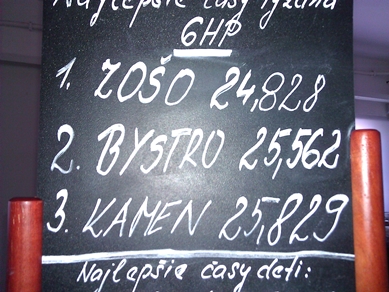 Najlepšie časy týždňa
GHP
1. ZOŠO 24,828
2. BYSTRO 25,562
3. KAMEN 25,829
Najlepšie časy detí: